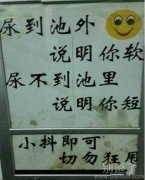 尿到池外
说明你软
尿不到池里
说明你短
小抖即可
切勿狂甩